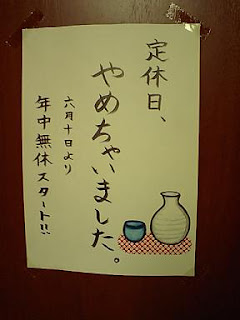 定休日、
やめちゃいました。
六月十日より
年中無休スタート!!